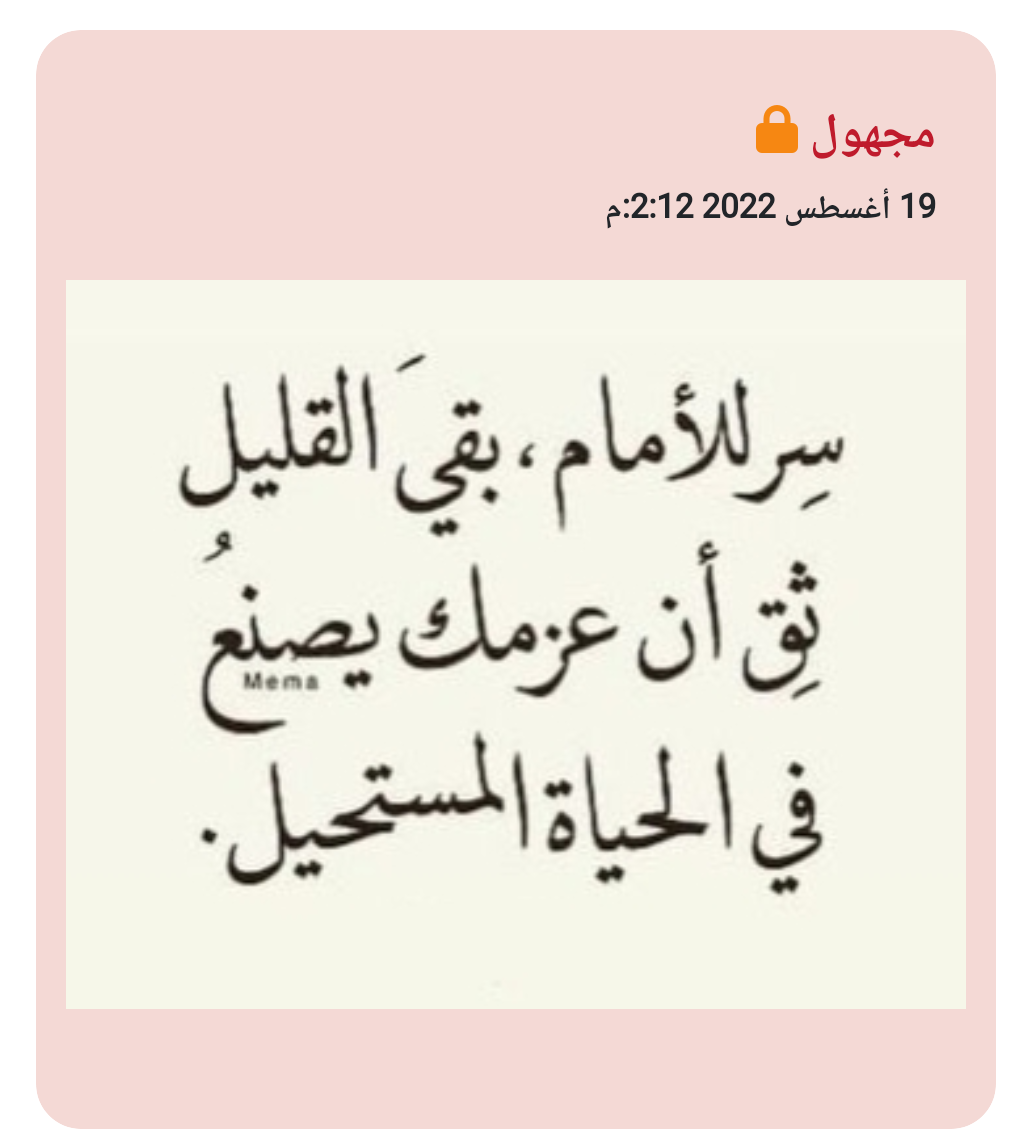 مجهول
19 أغسطس 2022 2:12:م
سِر للأمام ، بقيَ القليل
ثِق أن عزمك يصنعُ
Mema
في الحياة المستحيل .